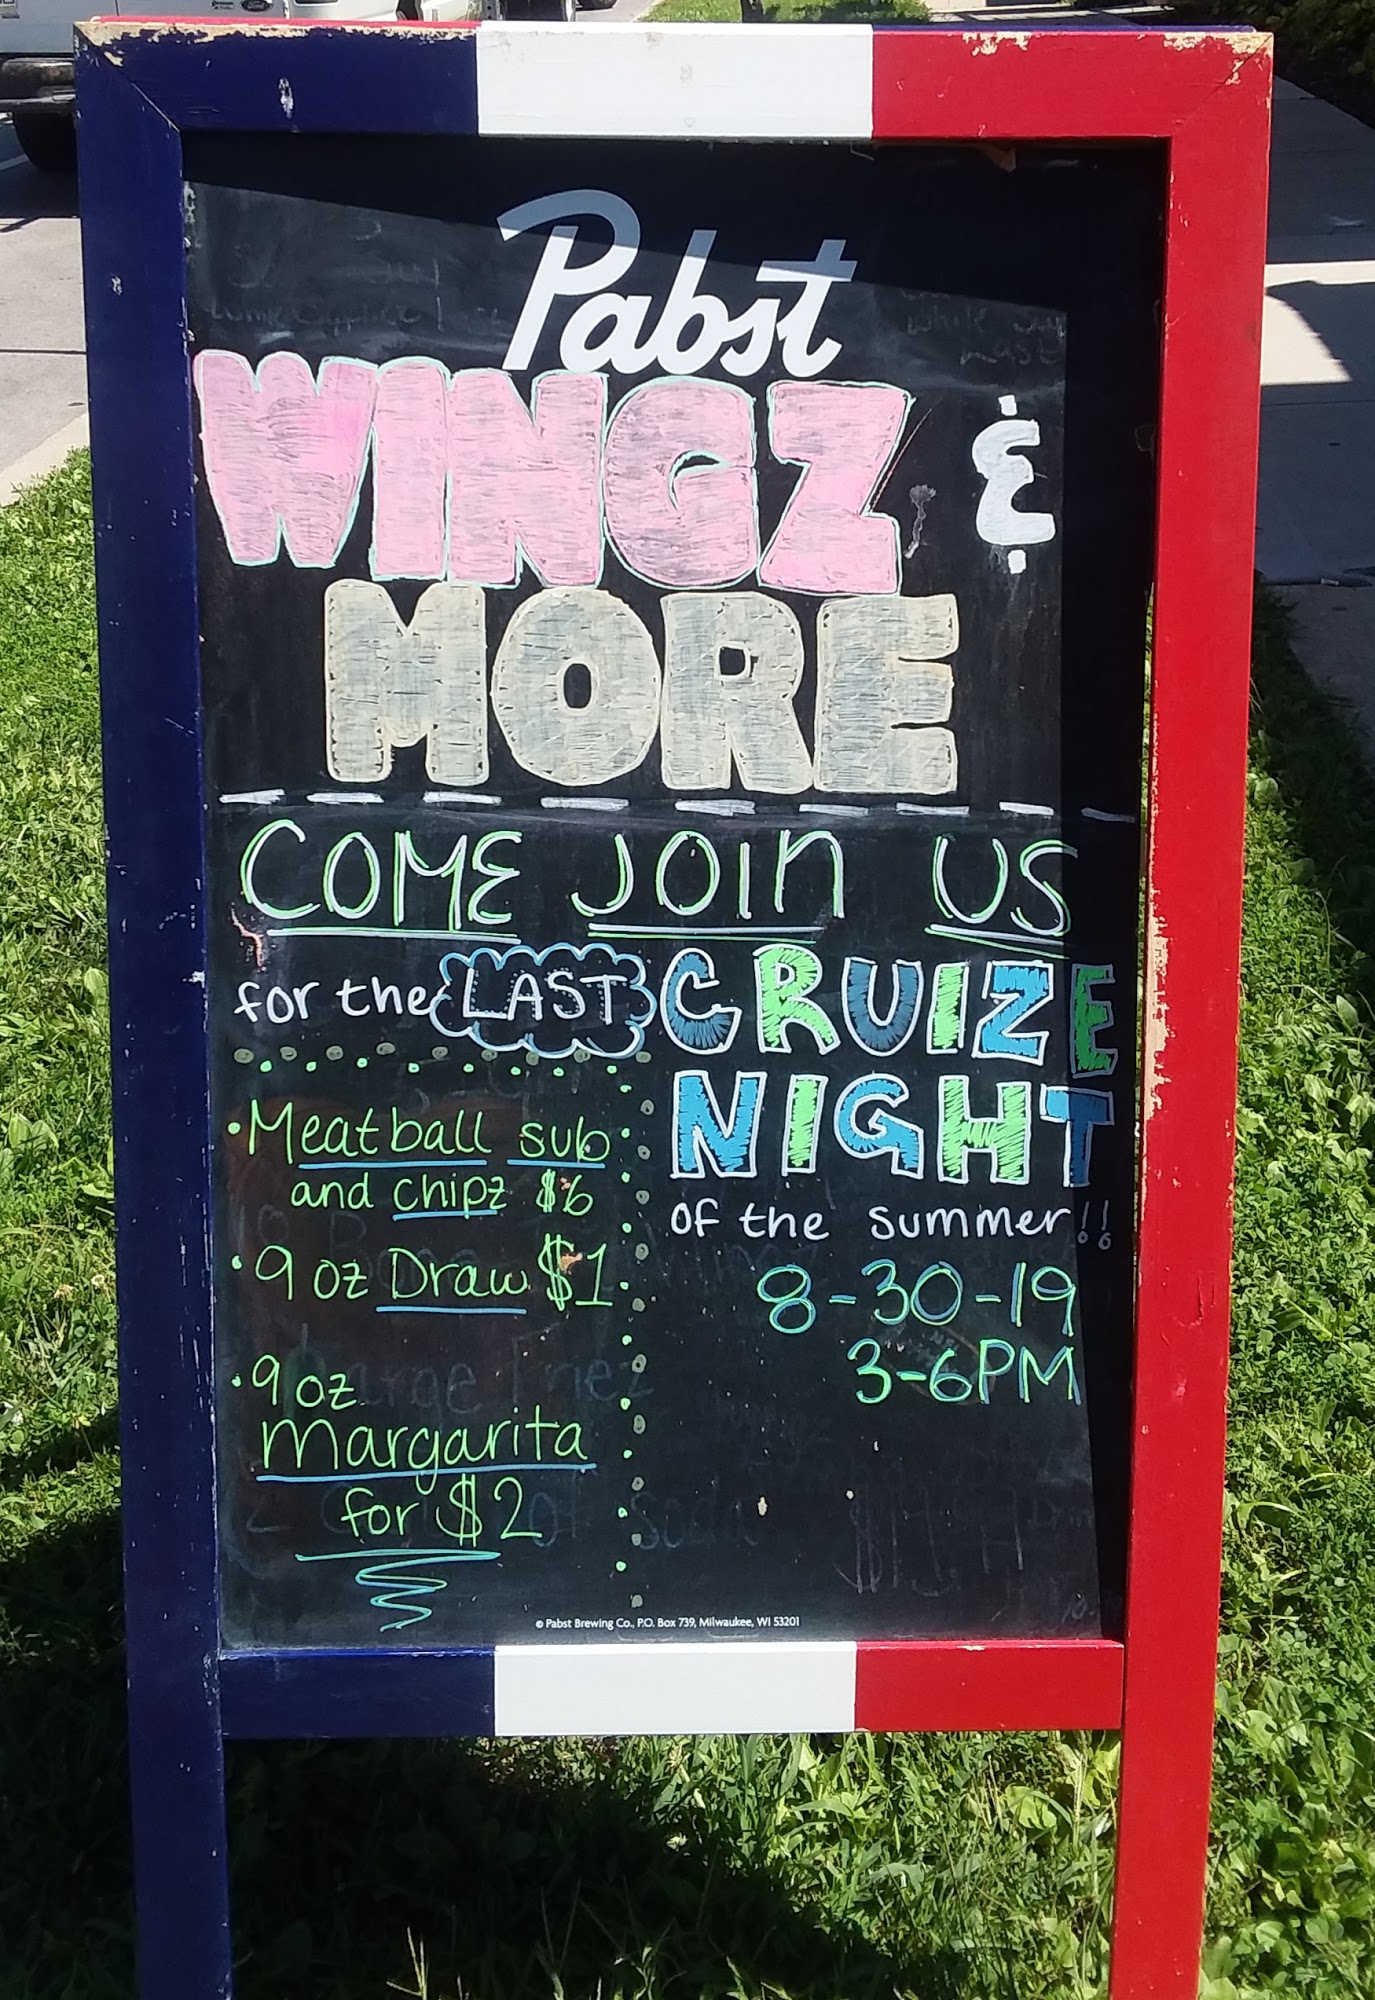 Pabst
WINGZ &
MORE
COME JOIN US
for the LAST CRUIZE
NIGHT
of the summer!!
8-30-19
3-6PM
• Meatball sub
and chipz $6
• 9 oz Draw $1
• 9 oz
Margarita
for $2
© Pabst Brewing Co., P.O. Box 739, Milwaukee, WI 53201